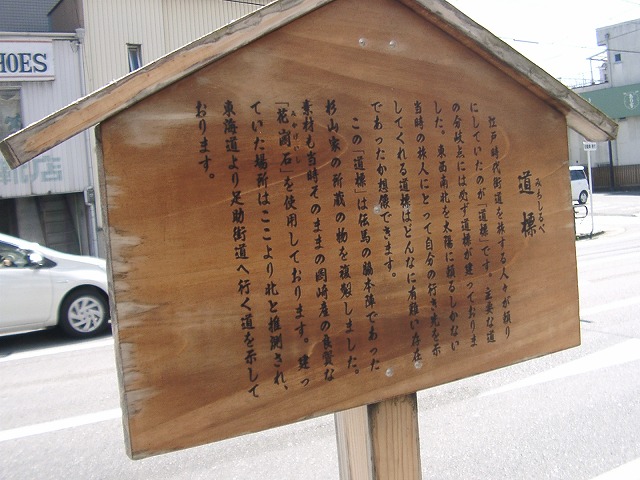 道標
みちしるべ
江戸時代街道を旅する人々が頼り
にしていたのが「道標」です。主要な道
の分岐点には必ず道標が建っておりま
した。東西南北を太陽に頼るしかない
当時の旅人にとって自分の行き先を示
してくれる道標はどんなに有難い存在
であったか想像できます。
この「道標」は伝馬の脇本陣であった
杉山家の所蔵の物を複製しました。
素材も当時そのままの岡崎産の良質な
「花崗石」を使用しております。建っ
みかげいし
ていた場所はここより北と推測され、
東海道より足助街道へ行く道を示して
おります。
HOES